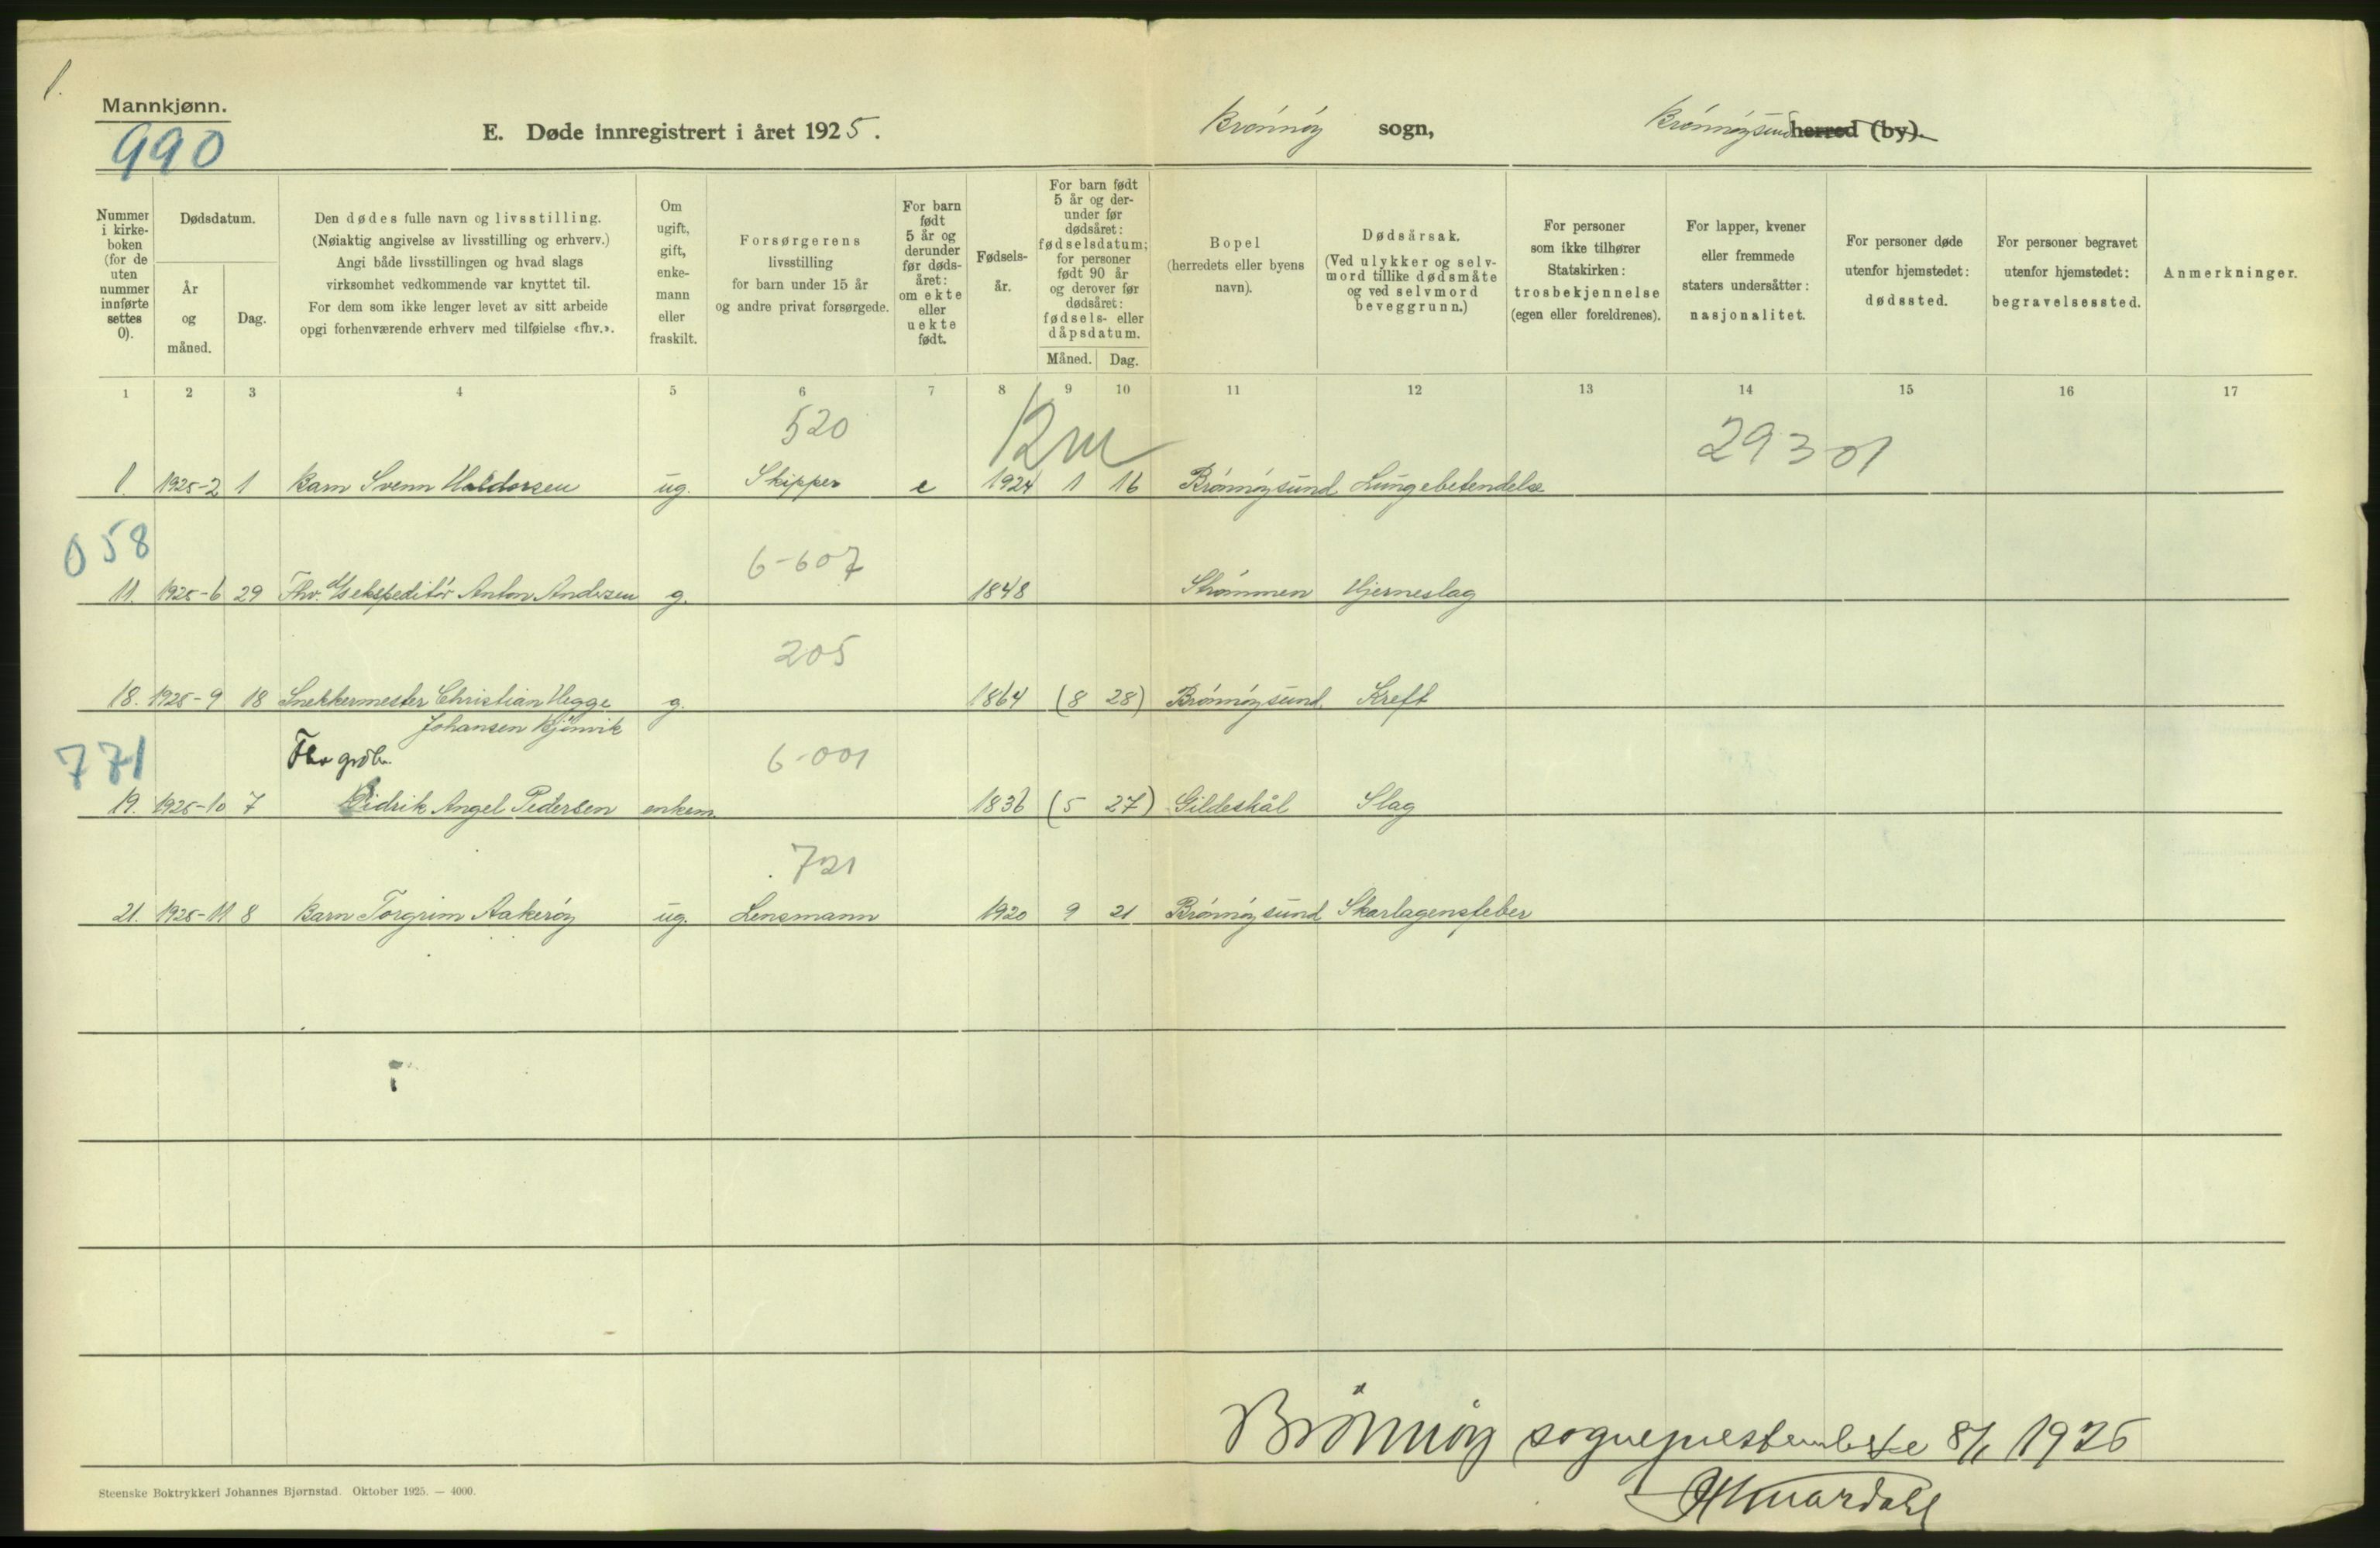 1.
Mannkjønn.
990
E. Døde innregistrert i året 1925.
Brønnøy sogn, Brønnøysund herred (by).
Nummer i kirke-boken (for de uten nummer innførte settes 0).
Dødsdatum.
År og måned.
Dag.
Den dødes fulle navn og livsstilling.
(Nøiaktig angivelse av livsstilling og erhverv.)
Angi både livsstillingen og hvad slags
virksomhet vedkommende var knyttet til.
For dem som ikke lenger levet av sitt arbeide
opgi forhenværende erhverv med tilføielse «fhv.».
Om ugift, gift, enke-mann eller fraskilt.
Forsørgerens
livsstilling
for barn under 15 år
og andre privat forsørgede.
For barn født 5 år og derunder før døds-året: om ekte eller uekte født.
Fødsels-år.
For barn født 5 år og der-under før dødsåret: fødselsdatum; for personer født 90 år og derover før dødsåret: fødsels- eller dåpsdatum.
Måned. Dag.
Bopel
(herredets eller byens
navn).
Dødsårsak.
(Ved ulykker og selv-
mord tillike dødsmåte
og ved selvmord
beveggrunn.)
For personer
som ikke tilhører
Statskirken:
trosbekjennelse
(egen eller foreldrenes).
For lapper, kvener
eller fremmede
staters undersåtter:
nasjonalitet.
For personer døde
utenfor hjemstedet:
dødssted.
For personer begravet
utenfor hjemstedet:
begravelsessted.
Anmerkninger.
1 2 3 4 5 6 7 8 9 10 11 12 13 14 15 16 17
520 12 m 29301
1. 1925-2 1 Barn Svenn Haldorsen ug. Skipper e 1924 1 16 Brønnøysund Lungebetendelse
058
6-607
11. 1925-6 29 Fhv. Dsekspeditør Anton Andersen g. 1848 Strømmen Hjerneslag
205
18. 1925-9 18 Snekkermester Christian Hegge g. 1864 (8 28) Brønnøysund Kreft
Johansen
771
Fhv grdbr.
6-001
19. 1925-10 7 Didrik Angel Pedersen enkem. 1836 (5 27) Gildeskål Slag
721
21. 1925-11 8 Barn Torgrim Aakerøy ug. Lensmann 1920 9 21 Brønnøysund Skarlagensfeber
Brønnøy sogneprestembete 8/1 1926
Steenske Boktrykkeri Johannes Bjørnstad. Oktober 1925. — 4000.